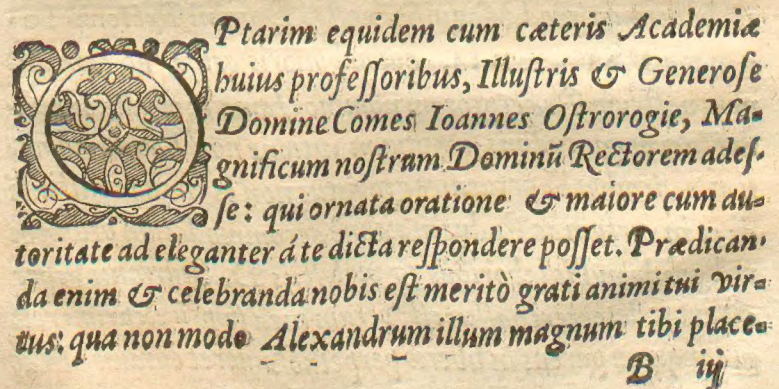 OPtarim equidem cum cæteris Academiæ
huius profeſſoribus, Illuſtris & Generoſe
Domine Comes Ioannes Oſtrorogie, Ma-
gnificum noſtrum Dominũ Rectorem adeſ-
ſe: qui ornata oratione & maiore cum au-
toritate ad eleganter á te dicta reſpondere poſſet. Prædican-
da enim & celebranda nobis eſt meritò grati animi tui vir-
tus: qua non modo Alexandrum illum magnum tibi place-
B iij